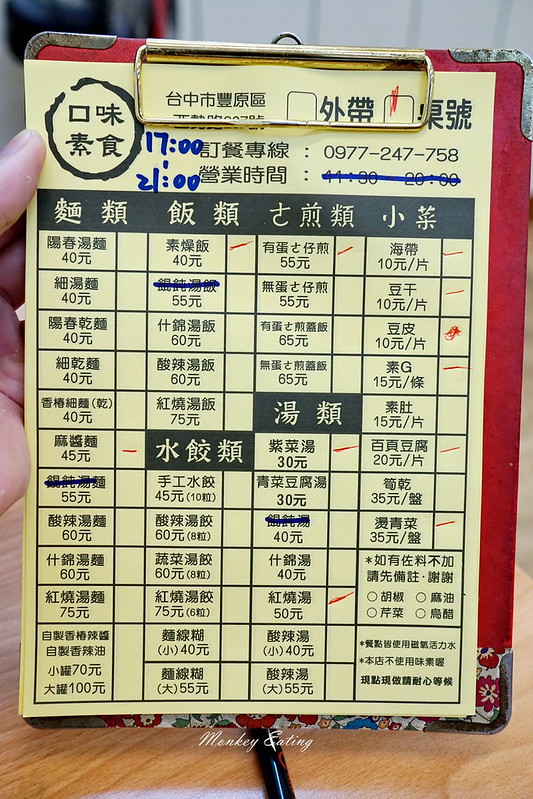 口味
素食
台中市豐原區
外帶
桌號
17:00
21:00
訂餐專線：0977-247-758
營業時間：11:30 - 20:00
麵類 飯類 ㄜ煎類 小菜
陽春湯麵
40元
細湯麵
40元
陽春乾麵
40元
細乾麵
40元
香椿細麵(乾)
40元
麻醬麵
45元
餛飩湯麵
55元
酸辣湯麵
60元
什錦湯麵
60元
紅燒湯麵
75元
自製香椿辣醬
自製香辣油
小罐70元
大罐100元
素燥飯
40元
餛飩湯飯
55元
什錦湯飯
60元
酸辣湯飯
60元
紅燒湯飯
75元
水餃類
手工水餃
45元(10粒)
酸辣湯餃
60元(8粒)
蔬菜湯餃
60元(8粒)
紅燒湯餃
75元(6粒)
麵線糊
(小)40元
麵線糊
(大)55元
有蛋ㄜ仔煎
55元
無蛋ㄜ仔煎
55元
有蛋ㄜ煎蓋飯
65元
無蛋ㄜ煎蓋飯
65元
湯類
紫菜湯
30元
青菜豆腐湯
30元
餛飩湯
40元
什錦湯
40元
紅燒湯
50元
酸辣湯
(小)40元
酸辣湯
(大)55元
海帶
10元/片
豆干
10元/片
豆皮
10元/片
素G
15元/條
素肚
15元/片
百頁豆腐
20元/片
筍乾
35元/盤
燙青菜
35元/盤
*如有佐料不加
請先備註‧謝謝
○胡椒 ○麻油
○芹菜 ○烏醋
*餐點皆使用磁氧活力水
*本店不使用味素喔
現點現做請耐心等候
Monkey Eating